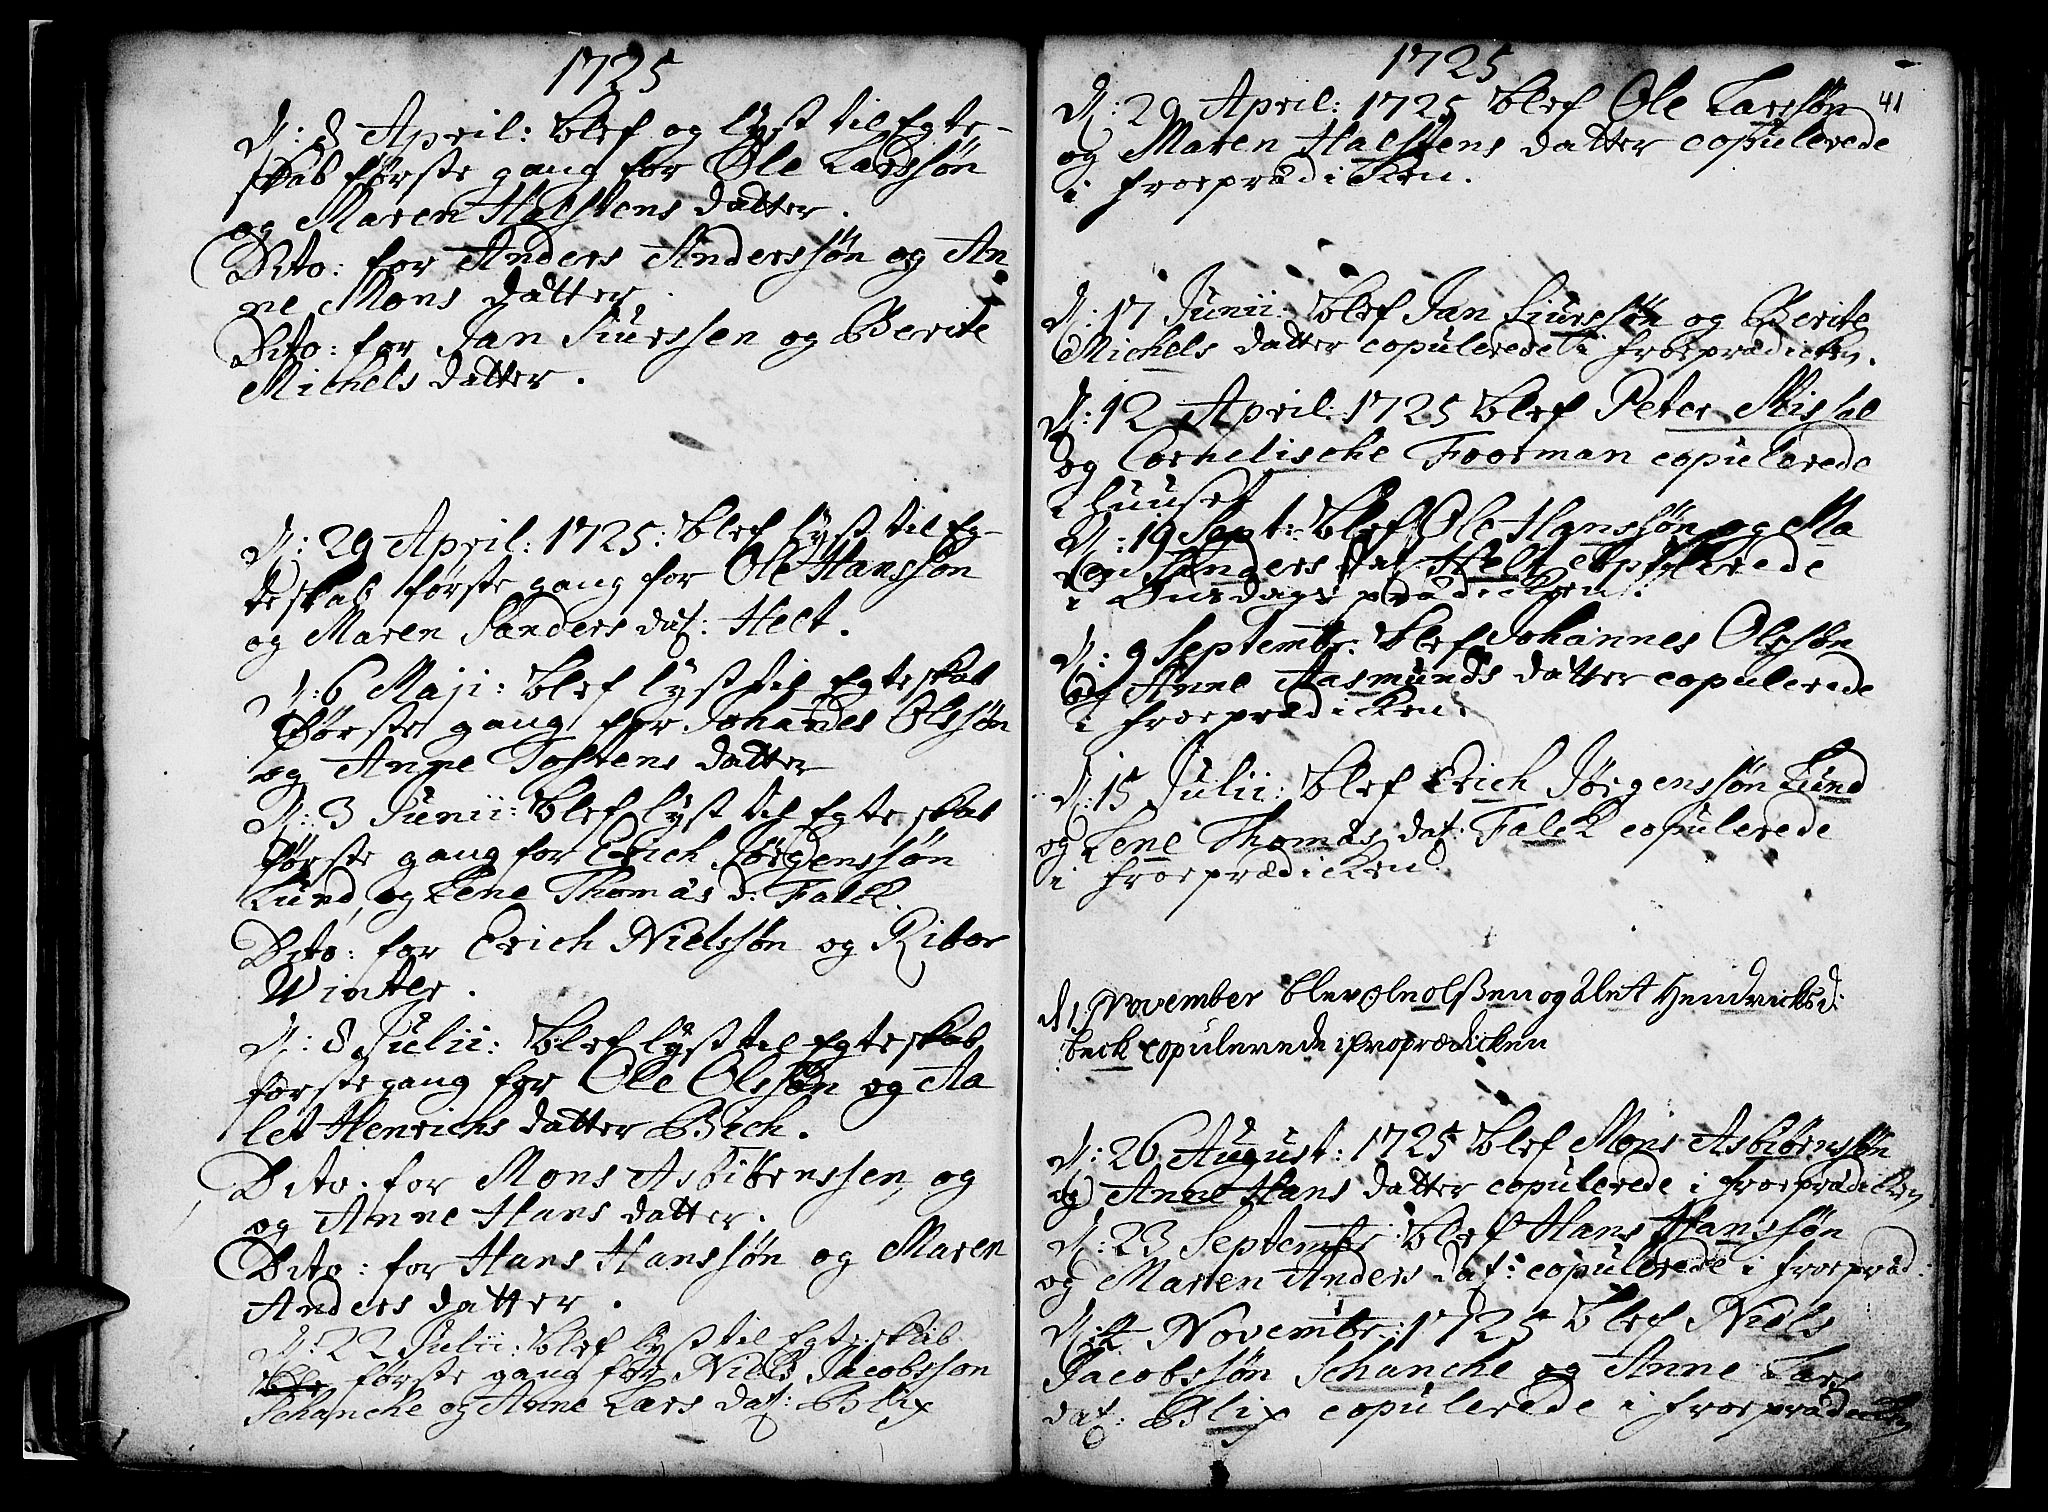 1725
D: 8 April: blef og lÿst til Egte-
skab første gang for Ole Larssøn
og Maren Halstens datter.
Dito: for Anders Anderssøn og An
ne Mons datter.
Dito: for Jan Siurssen og Berite
Michels datter.
D: 29 April: 1725: blef lÿst til Eg-
teskab første gang for Ole Hanssøn
og Maren Sanders dat: Helt.
D: 6 Maji: blef lÿst til Egteskab
første gang for Johannes Olssøn
og Anne Tostens datter
D: 3 Junii: blef lÿst til Egteskab
første gang for Erich Jørgenssøn
Lund, og Lene Thomas d: Falck.
Dito: for Erich Nielssøn og Ribor
Winter.
D: 8 Julii: blef lÿst til Egteskab
første gang for Ole Olssøn og Aa
let Henrichs datter Bich.
Dito: for Mons Asbiørnssen, og
og Anne Hans datter.
Dito: for Hans Hanssøn og Maren
Anders datter.
D: 22 Julii: blef lÿst til Egteskab
første gang for Niels Jacobsson
Schanche og Anne Lars dat: Blix
1725
41
D: 29 April: 1725 blef Ole Larssøn
og Maren Halstens datter copulerede
i froeprædicken.
D: 17 Junii: blef Jan Siurssøn og Berite
Michels datter copulerede i froeprædicken.
D: 12 April: 1725 blef Peter
og Cornelische Foorman copulerede
i Huuset
D: 19 Sept: blef Ole Hanssøn og Ma
ren Sanders dat Helt copulerede
i Onsdags prædicken.
D: 9 Septembr: blef Johannes Olssøn
og Anne Aasmunds datter copulerede
i froeprædicken.
D: 15 Julii: blef Erich Jørgenssøn Lund
og Lene Thomas dat: Falck copulerede
i froeprædicken.
d 1 November blev ole olßen og alet Hendricks d:
beck copulerede i froprædicken
D: 26 August: 1725 blef Mons Asbiørnsøn
og Anne Hans datter copulerede i froeprædicken
D: 23 Septembr: blef Hans Hanssøn
og Maren Anders dat: copulerede i froepræd:
D: Novembr: 1725 blef Niels
Jacobssøn Schanche og Anne Lars
dat: Blix copulerede i froeprædicken